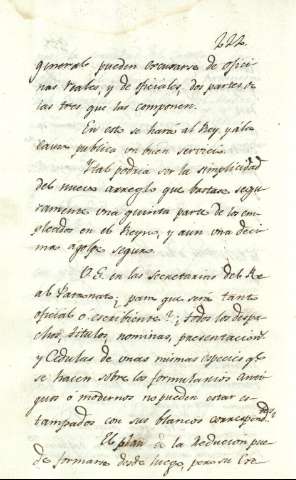 222.
general pueden escusarse de ofici-
nas Reales, y de oficiales, dos partes, de
las tres que las componen.
En esto se hará al Rey, y á la
causa publica un buen servicio.
Tal podría ser la simplicidad
del nuevo arreglo que bastase segu-
ramente una quinta parte de los em-
pleados en el Reyno, y aun una deci-
ma a golpe seguro.
V.G. en las secretarias del Re-
al Patronato, para que será tanto
oficial o escribiente? Todos los despa-
chos, titulos, nominas, presentacion.s
y Cedulas de unas mismas especies q.e
se hacen sobre los formularios anti-
guos o modernos no pueden estar es-
tampados con sus blancos correspond.tes?
El plan de la Reducion pue-
de formarse desde luego, pero su